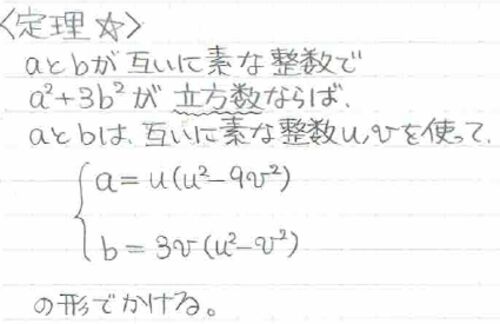 〈定理☆〉
aとbが互いに素な整数で
a²+3b²が立方数ならば、
aとbは、互いに素な整数u,vを使って、
a=u(u²-9v²)
b=3v(u²-v²)
の形でかける。